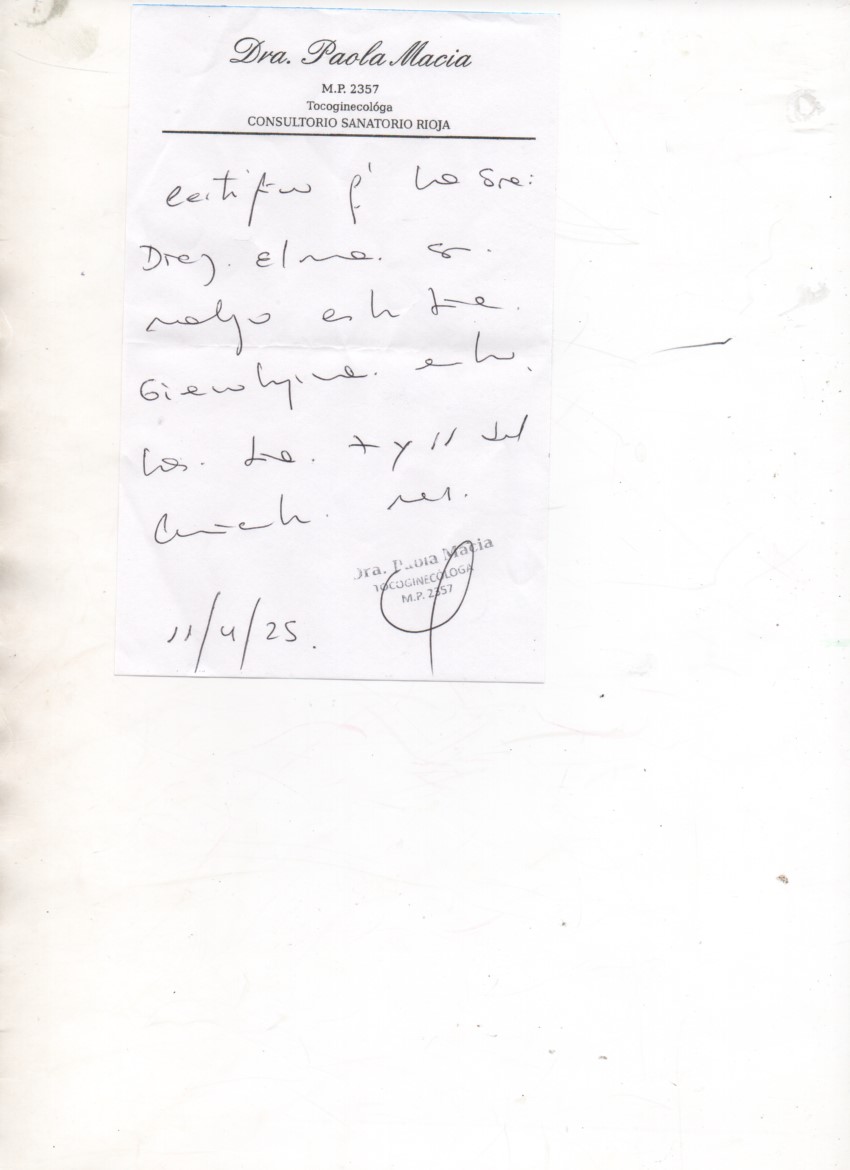 Dra. Paola Macia
M.P. 2357
Tocoginecológa
CONSULTORIO SANATORIO RIOJA
certifico q' la Sra:
Elma. se
realizo
Ginecologica.
los 7 y 11 del
corriente mes.
Dra. Paola Macia
TOCOGINECÓLOGA
M.P. 2357
11/4/25.